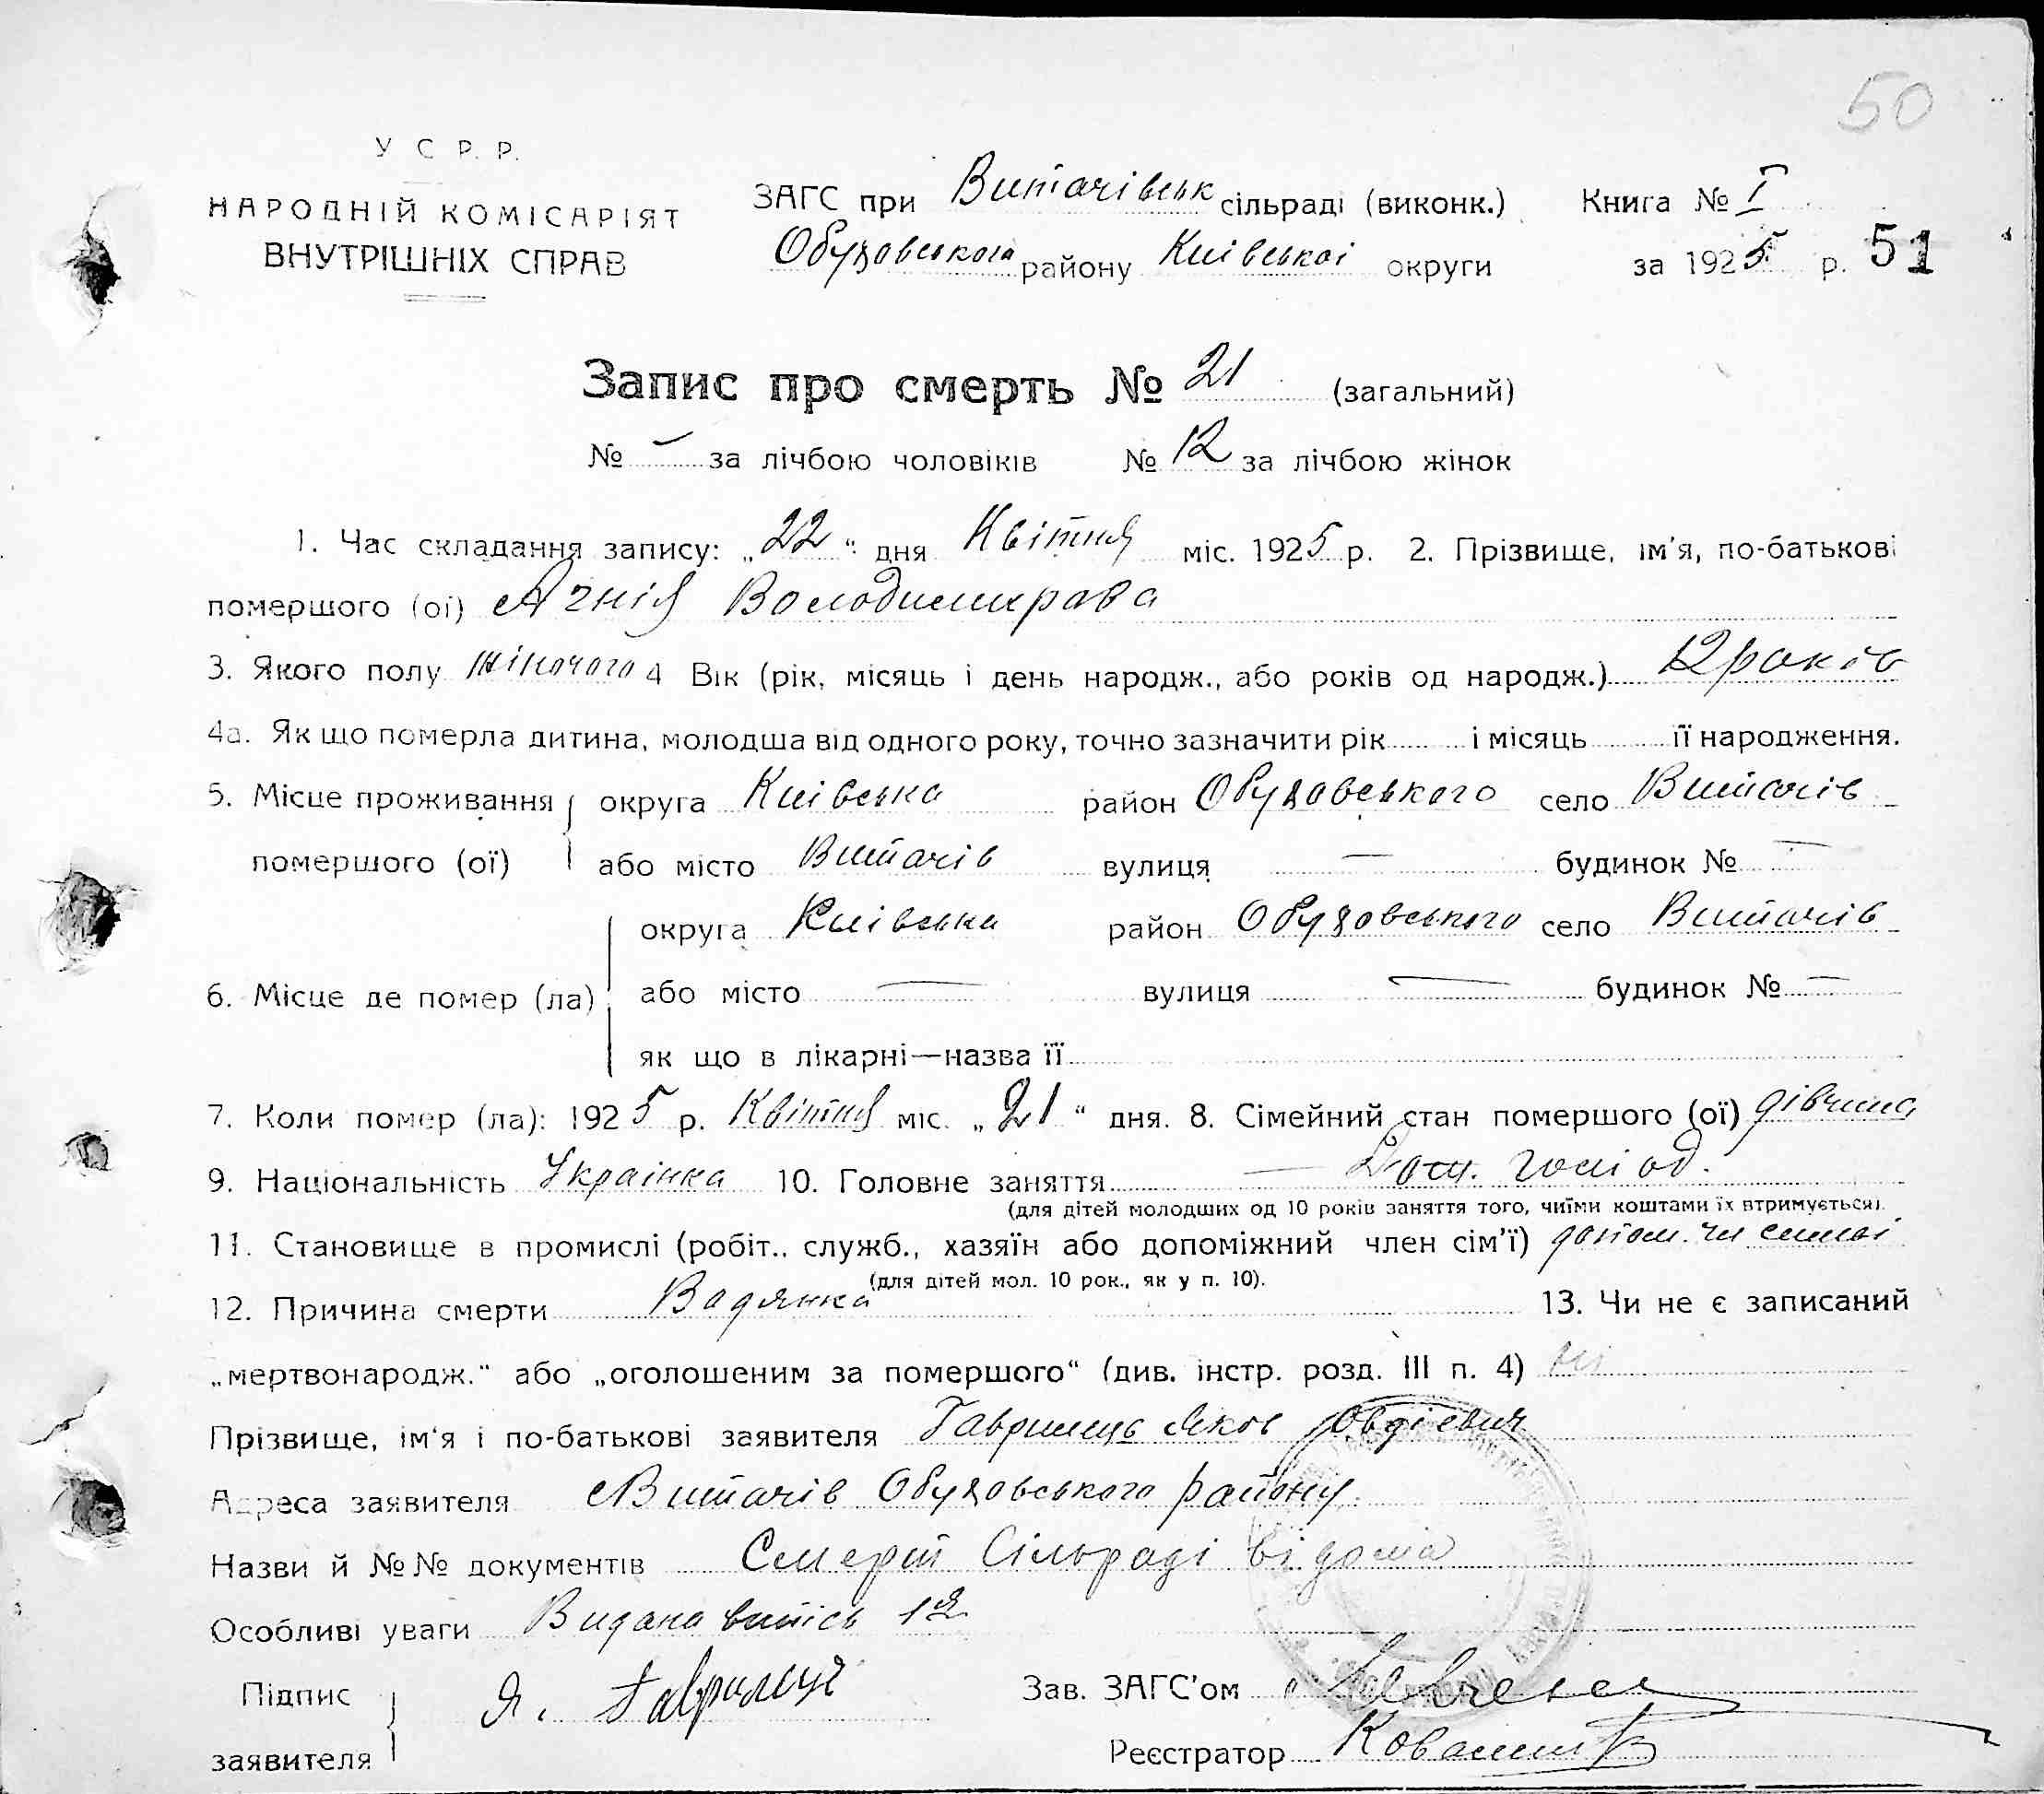 50
У С Р. Р.
НАРОДНІЙ КОМІСАРІЯТ
ВНУТРІШНІХ СПРАВ
ЗАГС при Витачівськ сільраді (виконк.) Книга № I
Обуховського району Київської округи за 1925 р. 51
Запис про смерть № 21 (загальний)
№ — за лічбою чоловіків № 12 за лічбою жінок
1. Час складання запису: „22“ дня Квітня міс. 1925 р. 2. Прізвище, ім'я, по-батькові
помершого (ої) Агнія Володимирова
3. Якого полу жіночого 4 Вік (рік, місяць і день народж., або років од народж.) 12 років
4а. Як що померла дитина, молодша від одного року, точно зазначити рік і місяць її народження.
5. Місце проживання округа Київська район Обуховського село Витачів
помершого (ої) або місто Витачів вулиця — будинок № —
округа Київська район Обуховського село Витачів
6. Місце де помер (ла) або місто — вулиця — будинок № —
як що в лікарні—назва її
7. Коли помер (ла): 1925 р. Квітня міс. „21“ дня. 8. Сімейний стан помершого (ої) дівчина
9. Національність Українка 10. Головне заняття —
(для дітей молодших од 10 років заняття того, чиїми коштами їх втримується).
11. Становище в промислі (робіт., служб., хазяїн або допоміжний член сім'ї) допом. чл семьі
(для дітей мол. 10 рок., як у п. 10).
12. Причина смерти Водянка 13. Чи не є записаний
„мертвонародж.“ або „оголошеним за помершого“ (див. інстр. розд. III п. 4) ні
Прізвище, ім'я і по-батькові заявителя Гаврилець Яков Овдієвич
Адреса заявителя Витачів Обуховського району.
Назви й №№ документів Смерть Сільраді відома
Особливі уваги Видана випісь 12
Підпис заявителя Я. Гаврилець
Зав. ЗАГС'ом
Реєстратор